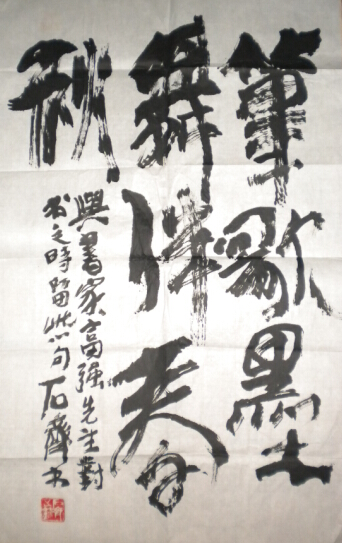 筆歌墨
舞伴春
秋
與書家富强先生對
書之時留此句 石齊書